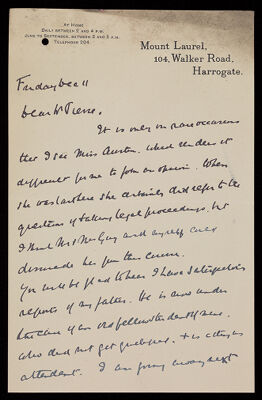 AT HOME
DAILY BETWEEN 2 AND 4 P.M.
JUNE TO SEPTEMBER, BETWEEN 2 AND 3 P.M.
TELEPHONE 204.
Mount Laurel,
104, Walker Road,
Harrogate.
Friday Dec 11
Dear Dr Pierse.
It is only on rare occasions
that I see Miss Austin. which renders it
difficult for me to form an opinion. When
she was last here she certainly did refer to the
question of taking legal proceedings, but
I think Mrs and myself could
dissuade her from this course.
You will be glad to hear I have satisfactory
reports of my father. He is now under
the care of an old fellow student of mine.
who did not get qualified. & is acting as
attendant. I am going away next